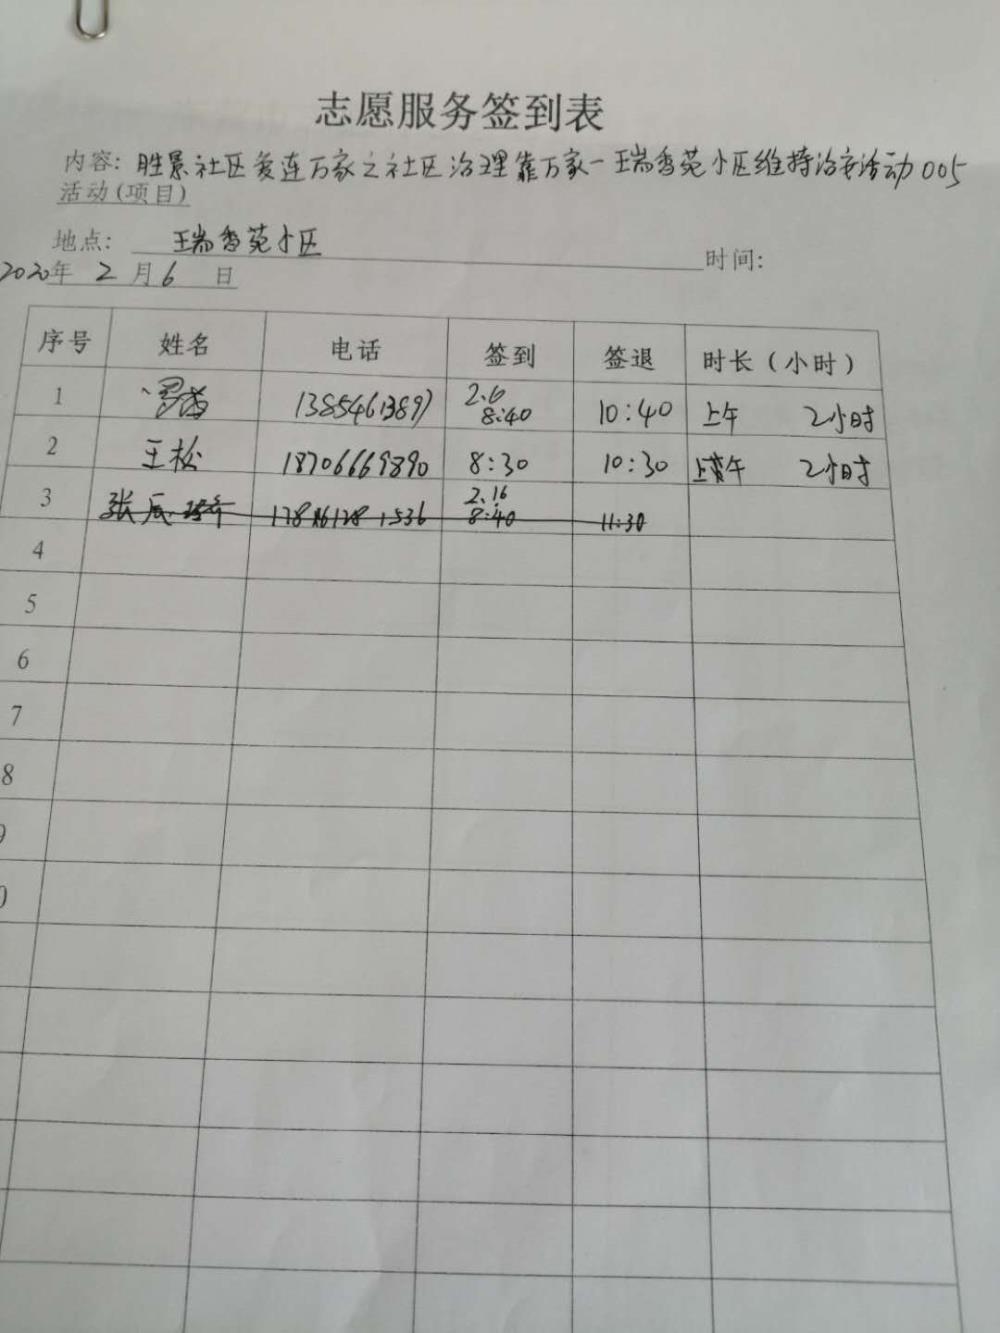 志愿服务签到表
内容: 胜景社区爱连万家之社区治理靠万家-瑞香苑小区维持治安活动005
活动(项目)
地点: 瑞香苑小区 时间:
2020年 2 月 6 日
序号 姓名 电话 签到 签退 时长（小时）
1 2.6 8:40 10:40 上午 2小时
2 王松 18706669890 8:30 10:30 上午 2小时
3 张辰 2.16 8:40 11:30
4
5
6
7
8